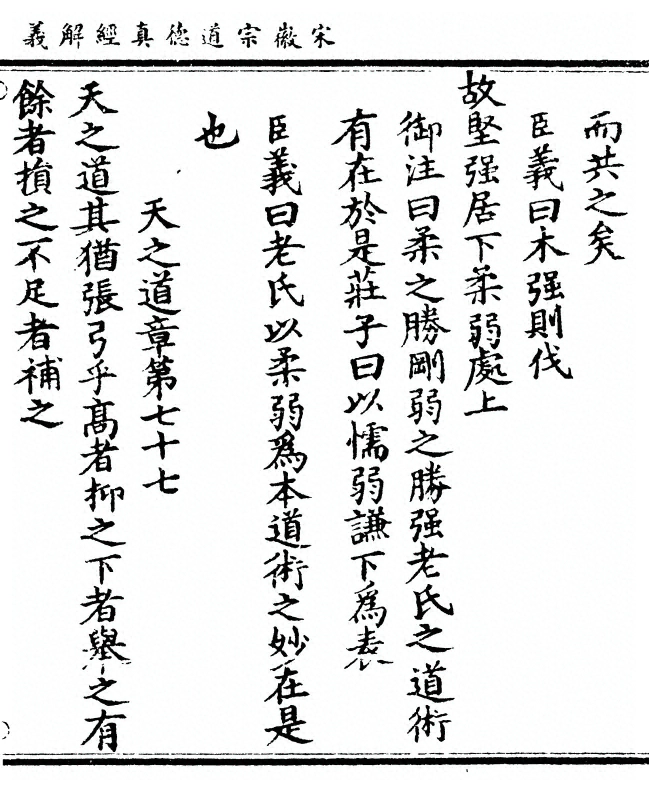 宋徽宗道德真經解義
而共之矣
臣義曰木强則伐
故堅强居下柔弱處上
御注曰柔之勝剛弱之勝强老氏之道術
有在於是莊子曰以懦弱謙下爲表
臣義曰老氏以柔弱爲本道術之妙在是
也
天之道章第七十七
天之道其猶張弓乎高者抑之下者舉之有
餘者損之不足者補之